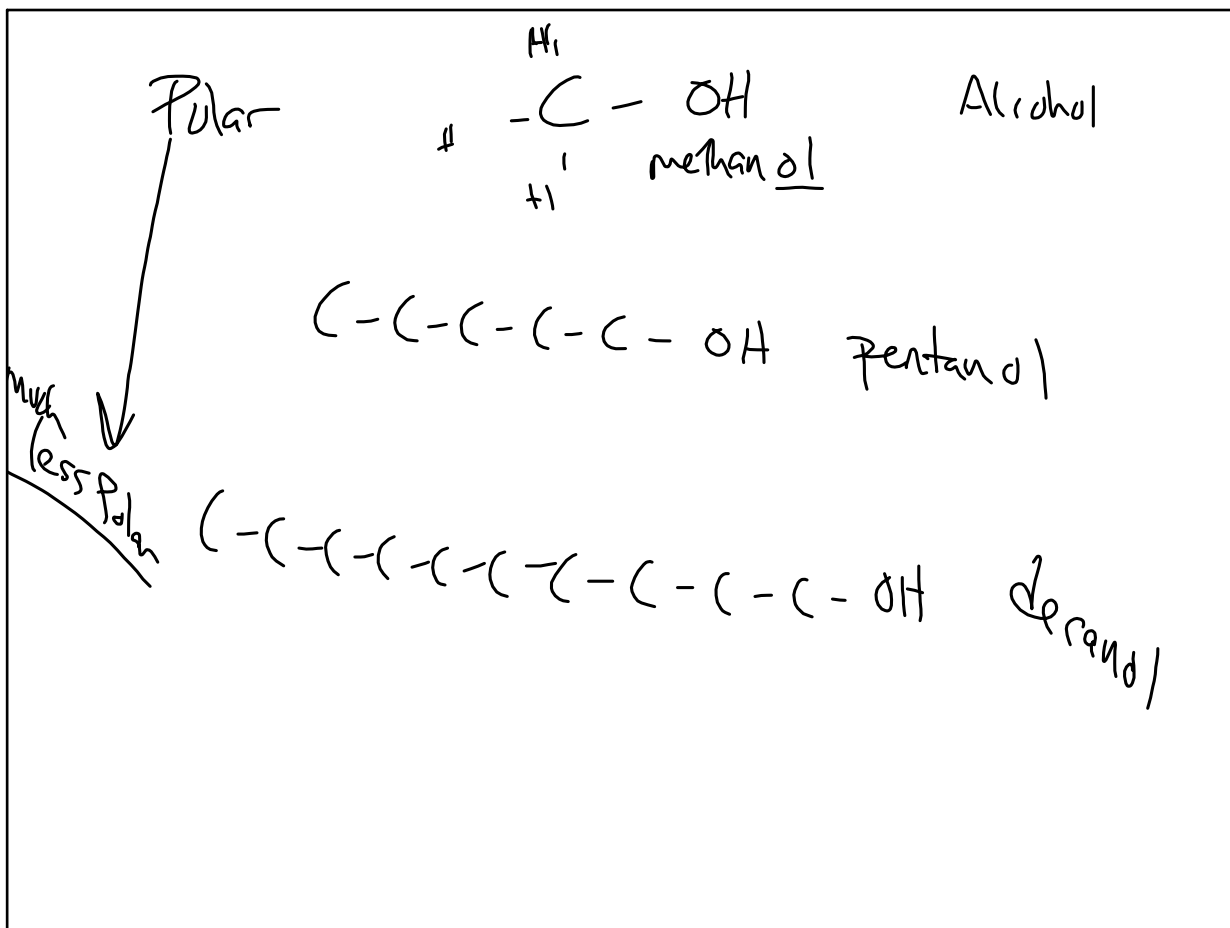 H
Polar H - C - OH Alcohol
H methanol
C - C - C - C - C - OH pentanol
much
less Polar
C - C - C - C - C - C - C - C - C - C - OH decanol